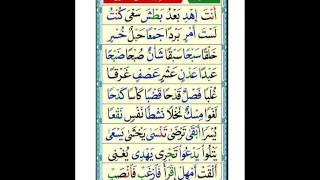 اَنْتَ اِهْدِ بَعْدُ بَطْشَ سَعْیَ كُنْتُ
لَسْتَ اَمْرِ بَرْدًا جَمْعًا حَبْلٌ خُبْرٍ
خَلْقًا سَبْحًا سَبْقًا شَاْنٌ صُبْحًا ضَبْحًا
عَبْدًا عَدْنٍ عَشْرٍ عَصْفٍ غَرْقًا
غُلْبًا فَصْلٌ قَدْحًا قَضْبًا كَاْسًا كَدْحًا
لَغْوًا مِسْكٌ نَخْلًا نَشْطًا نَفْسٍ نَقْعًا
يُسْرًا اَلْقٰى تَرْضٰى تَنْسٰى يَخْشٰى يَسْعٰى
يَتْلُوْا يَدْعُوْا تَجْرِیْ يَهْدِیْ يُغْنِیْ
اَلْقَتْ اَمْهِلْ اِقْرَاْ فَارْغَبْ فَانْصَبْ